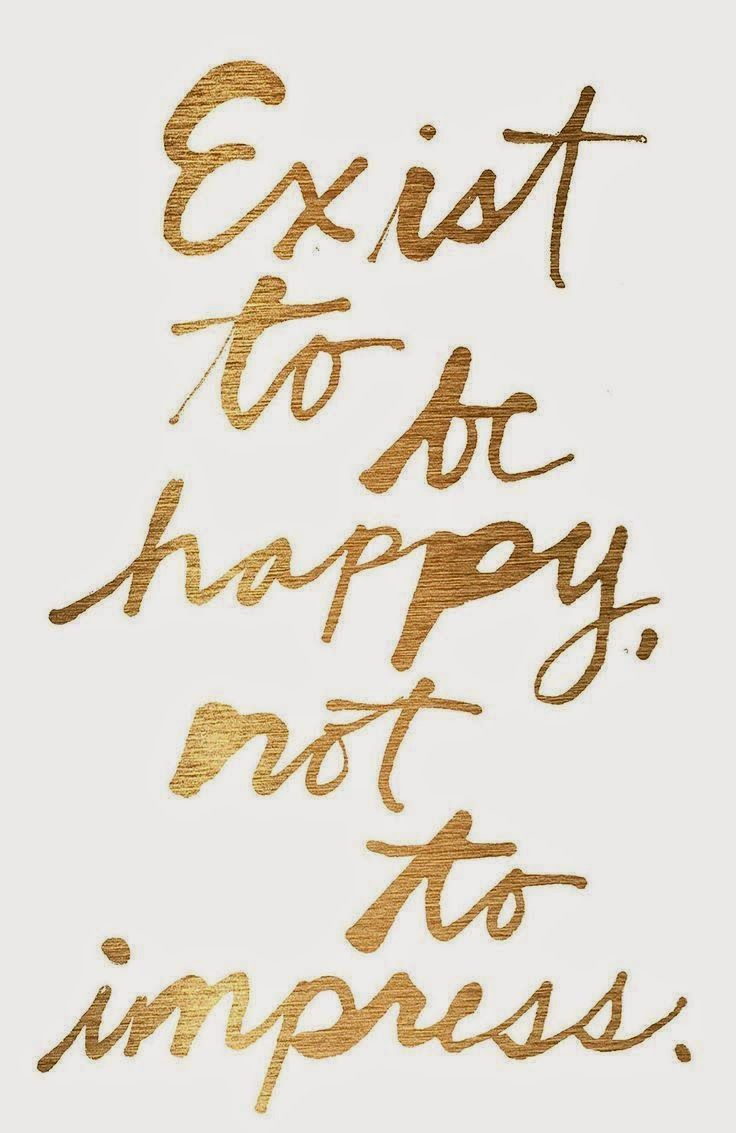 Exist
to
be
happy,
not
to
impress.